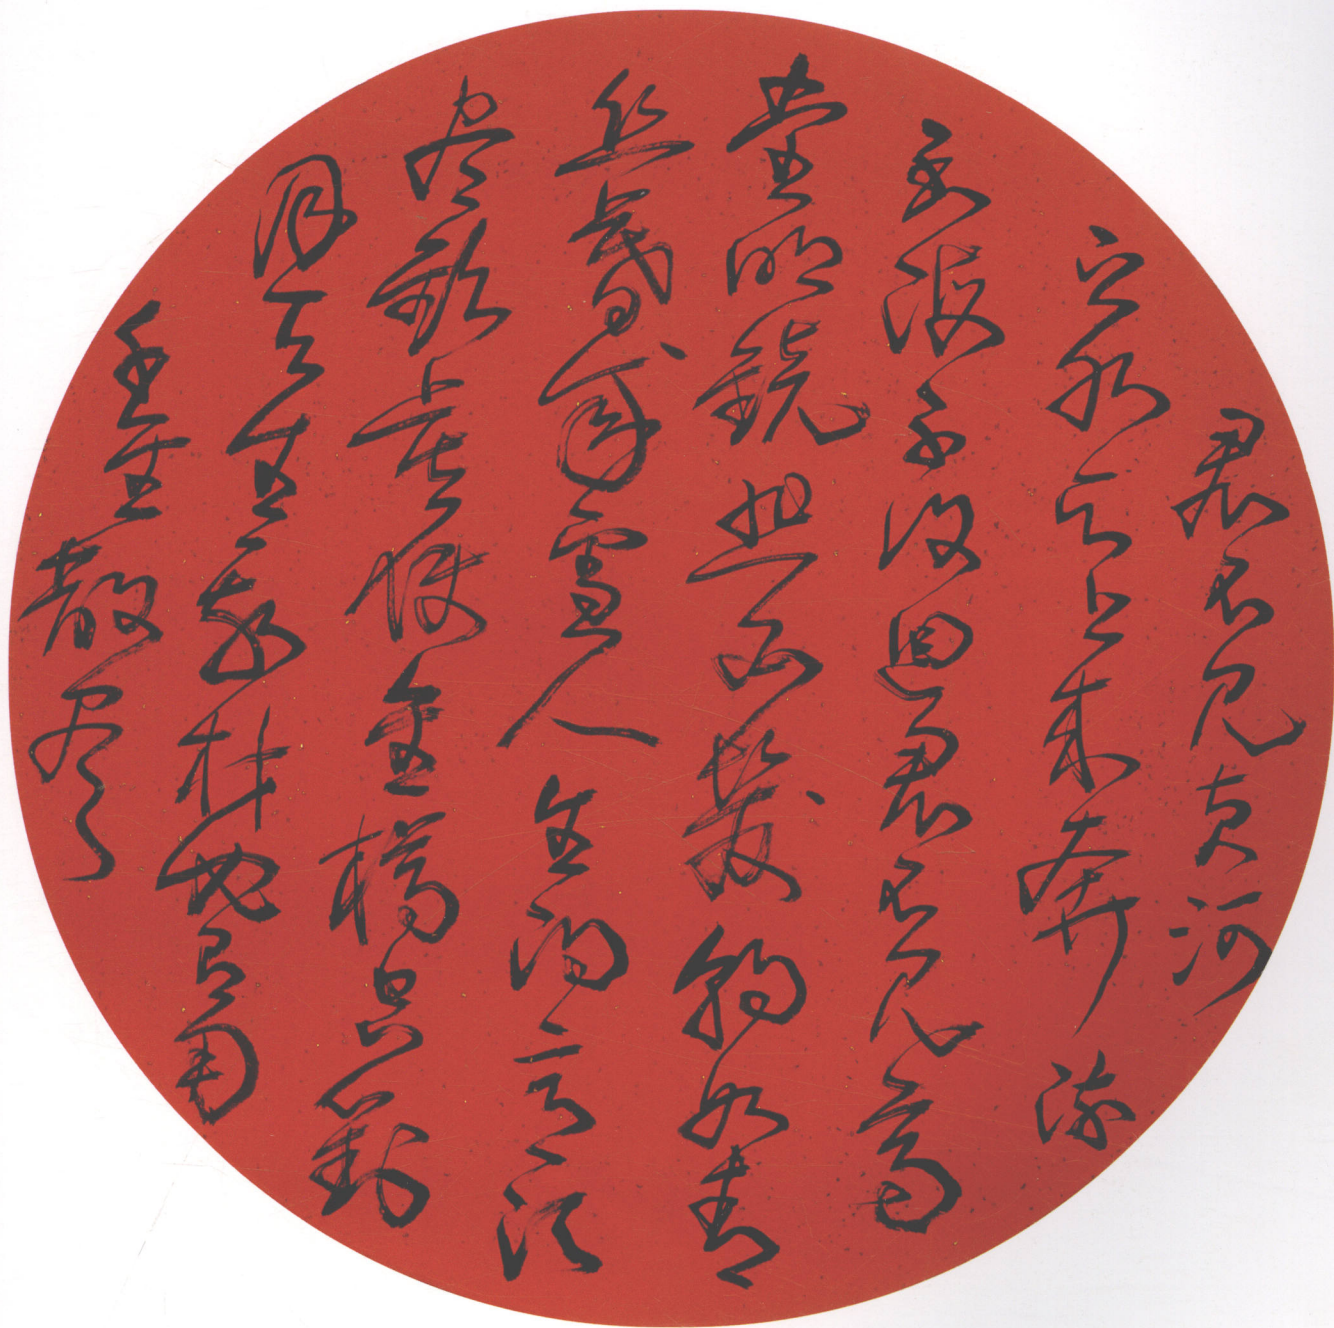 君不見黄河
之水天上来奔流
到海不復回君不見高
堂明鏡悲白髮朝如青
丝暮成雪人生得意須
尽歡莫使金樽空對
月天生我材必有用
千金散尽